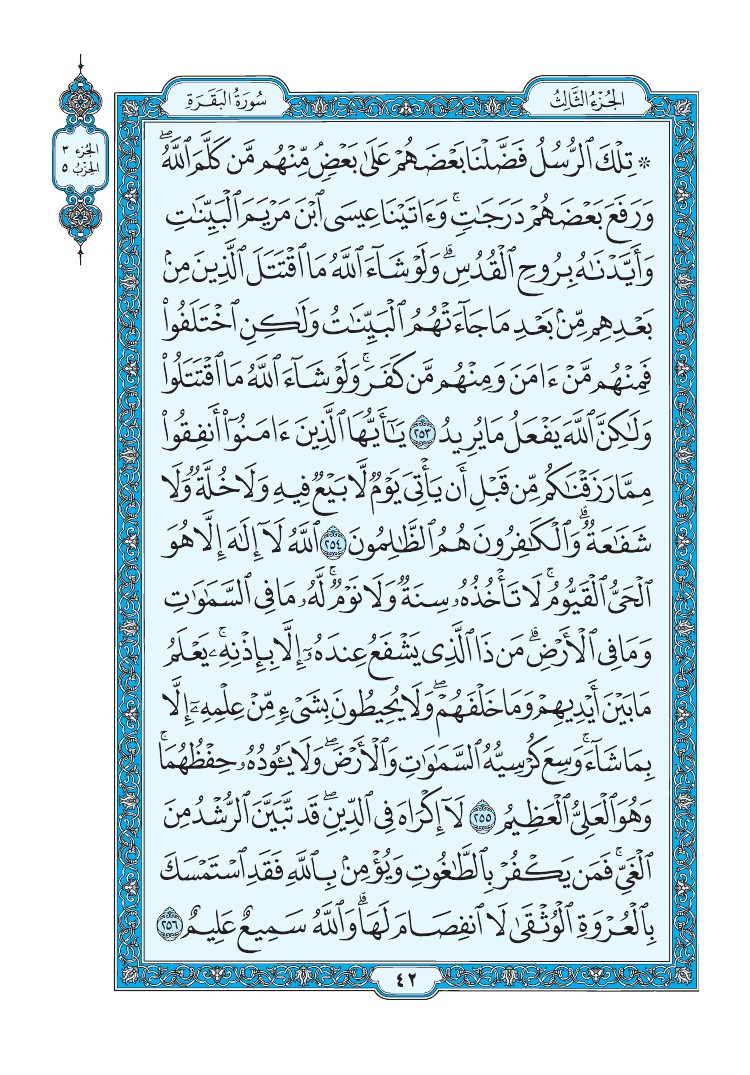 الجُزْءُ الثَّالِثُ
سُورَةُ البَقَرَةِ
الجزء ٣
الحِزْبُ ٥
۞ تِلْكَ ٱلرُّسُلُ فَضَّلْنَا بَعْضَهُمْ عَلَىٰ بَعْضٍۘ مِّنْهُم مَّن كَلَّمَ ٱللَّهُۖ
وَرَفَعَ بَعْضَهُمْ دَرَجَٰتٍۚ وَءَاتَيْنَا عِيسَى ٱبْنَ مَرْيَمَ ٱلْبَيِّنَٰتِ
وَأَيَّدْنَٰهُ بِرُوحِ ٱلْقُدُسِۗ وَلَوْ شَآءَ ٱللَّهُ مَا ٱقْتَتَلَ ٱلَّذِينَ مِنۢ
بَعْدِهِم مِّنۢ بَعْدِ مَا جَآءَتْهُمُ ٱلْبَيِّنَٰتُ وَلَٰكِنِ ٱخْتَلَفُوا۟
فَمِنْهُم مَّنْ ءَامَنَ وَمِنْهُم مَّن كَفَرَۚ وَلَوْ شَآءَ ٱللَّهُ مَا ٱقْتَتَلُوا۟
وَلَٰكِنَّ ٱللَّهَ يَفْعَلُ مَا يُرِيدُ ٢٥٣ يَٰٓأَيُّهَا ٱلَّذِينَ ءَامَنُوٓا۟ أَنفِقُوا۟
مِمَّا رَزَقْنَٰكُم مِّن قَبْلِ أَن يَأْتِىَ يَوْمٌ لَّا بَيْعٌ فِيهِ وَلَا خُلَّةٌ وَلَا
شَفَٰعَةٌۗ وَٱلْكَٰفِرُونَ هُمُ ٱلظَّٰلِمُونَ ٢٥٤ ٱللَّهُ لَآ إِلَٰهَ إِلَّا هُوَ
ٱلْحَىُّ ٱلْقَيُّومُۚ لَا تَأْخُذُهُۥ سِنَةٌ وَلَا نَوْمٌۚ لَّهُۥ مَا فِى ٱلسَّمَٰوَٰتِ
وَمَا فِى ٱلْأَرْضِۗ مَن ذَا ٱلَّذِى يَشْفَعُ عِندَهُۥٓ إِلَّا بِإِذْنِهِۦۚ يَعْلَمُ
مَا بَيْنَ أَيْدِيهِمْ وَمَا خَلْفَهُمْۖ وَلَا يُحِيطُونَ بِشَىْءٍ مِّنْ عِلْمِهِۦٓ إِلَّا
بِمَا شَآءَۚ وَسِعَ كُرْسِيُّهُ ٱلسَّمَٰوَٰتِ وَٱلْأَرْضَۖ وَلَا يَـُٔودُهُۥ حِفْظُهُمَاۚ
وَهُوَ ٱلْعَلِىُّ ٱلْعَظِيمُ ٢٥٥ لَآ إِكْرَاهَ فِى ٱلدِّينِۖ قَد تَّبَيَّنَ ٱلرُّشْدُ مِنَ
ٱلْغَىِّۚ فَمَن يَكْفُرْ بِٱلطَّٰغُوتِ وَيُؤْمِنۢ بِٱللَّهِ فَقَدِ ٱسْتَمْسَكَ
بِٱلْعُرْوَةِ ٱلْوُثْقَىٰ لَا ٱنفِصَامَ لَهَاۗ وَٱللَّهُ سَمِيعٌ عَلِيمٌ ٢٥٦
٤٢